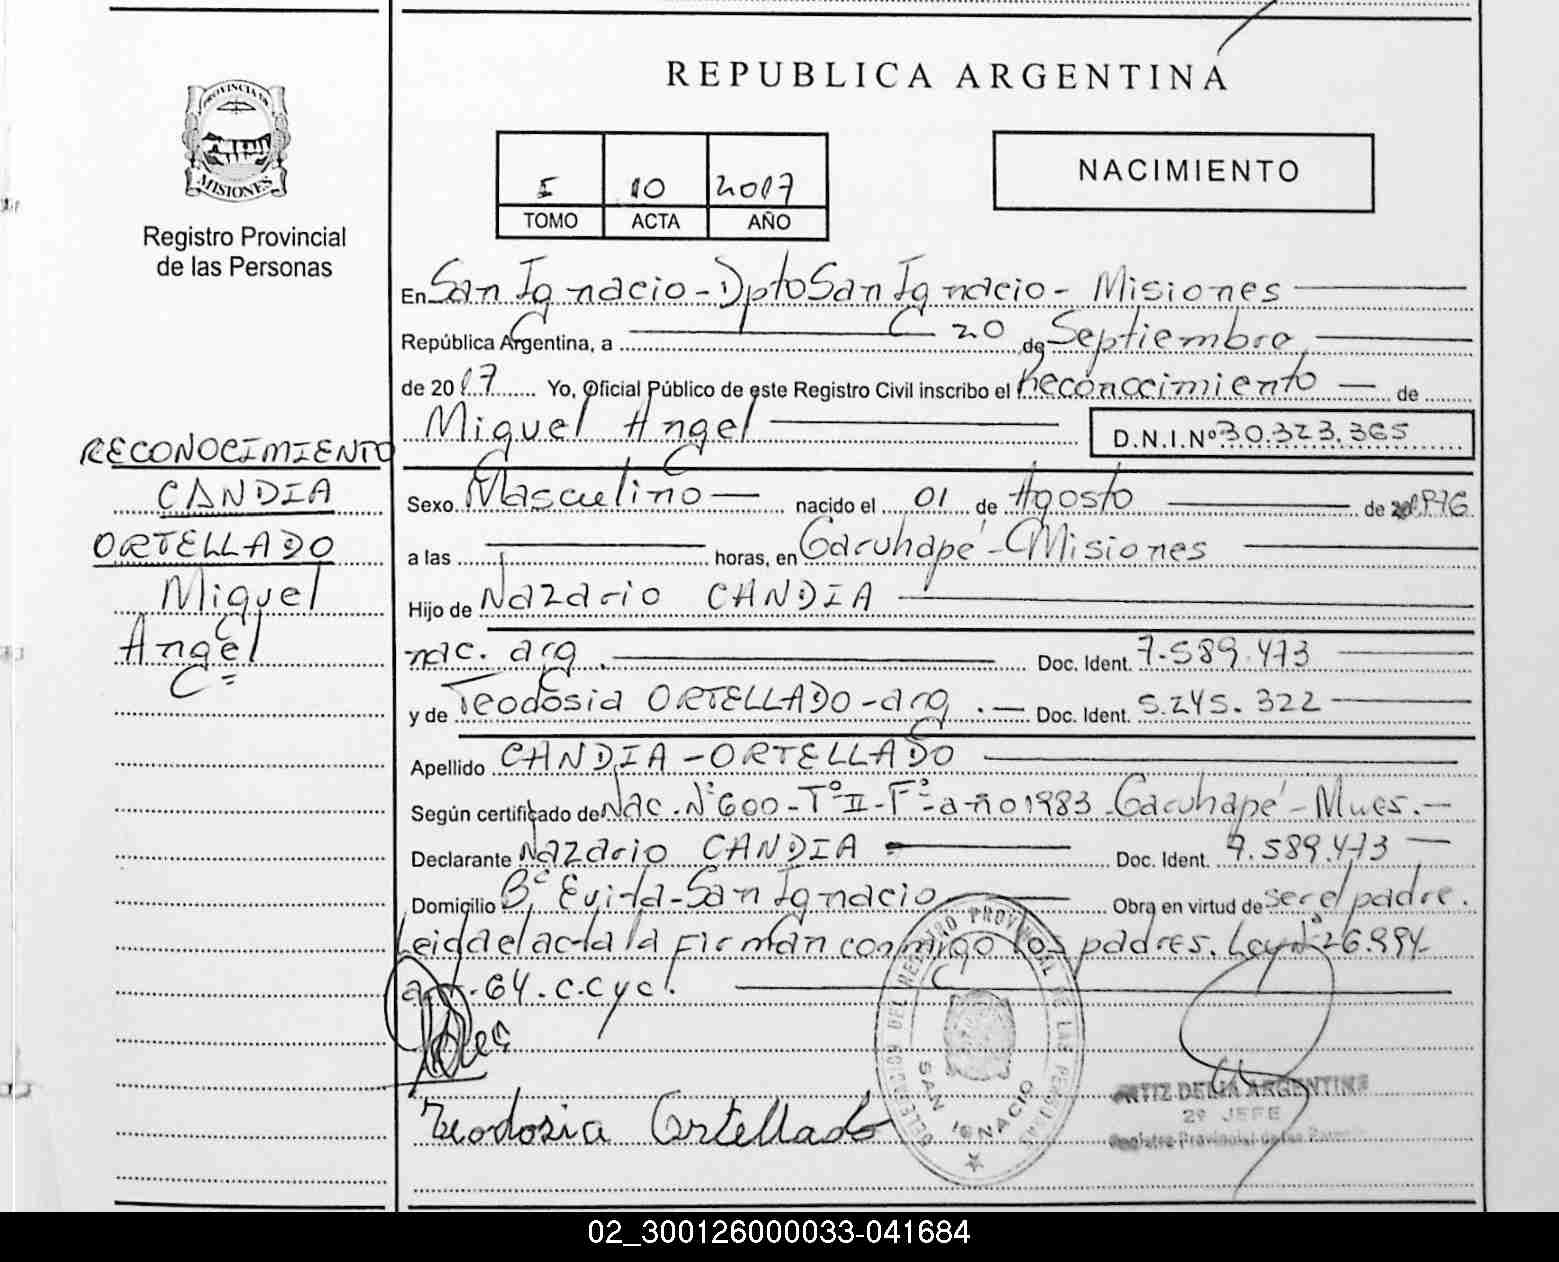 REPUBLICA ARGENTINA
PROVINCIA DE
MISIONES
Registro Provincial
de las Personas
I 10 2017
TOMO ACTA AÑO
NACIMIENTO
En San Ignacio - Dpto San Ignacio - Misiones
República Argentina, a 20 de Septiembre
de 2017 Yo, Oficial Público de este Registro Civil inscribo el Reconocimiento de
Miguel Angel D.N.I.Nº 30.323.365
RECONOCIMIENTO
CANDIA
ORTELLADO
Miguel
Angel
Sexo Masculino nacido el 01 de Agosto de
a las horas, en Garuhapé - Misiones
Hijo de Nazario CANDIA
nac. arg. Doc. Ident. 7.589.473
y de Teodosia ORTELLADO - arg. Doc. Ident. 5.245.322
Apellido CANDIA - ORTELLADO
Según certificado de Nac. Nº 600 - Tº II - Fº - año 1983 Garuhapé - Mnes. -
Declarante Nazario CANDIA Doc. Ident. 7.589.473
Domicilio Bº Evita - San Ignacio Obra en virtud de ser el padre.
Leida el acta la Firman conmigo los padres. Ley Nº 26.994
art. 64. C.C y C.
Teodosia Ortellado
DELEGACION DEL REGISTRO PROVINCIAL DE LAS PERSONAS
SAN IGNACIO
ORTIZ DELIA ARGENTINA
2º JEFE
Registro Provincial de las Personas
02_300126000033-041684